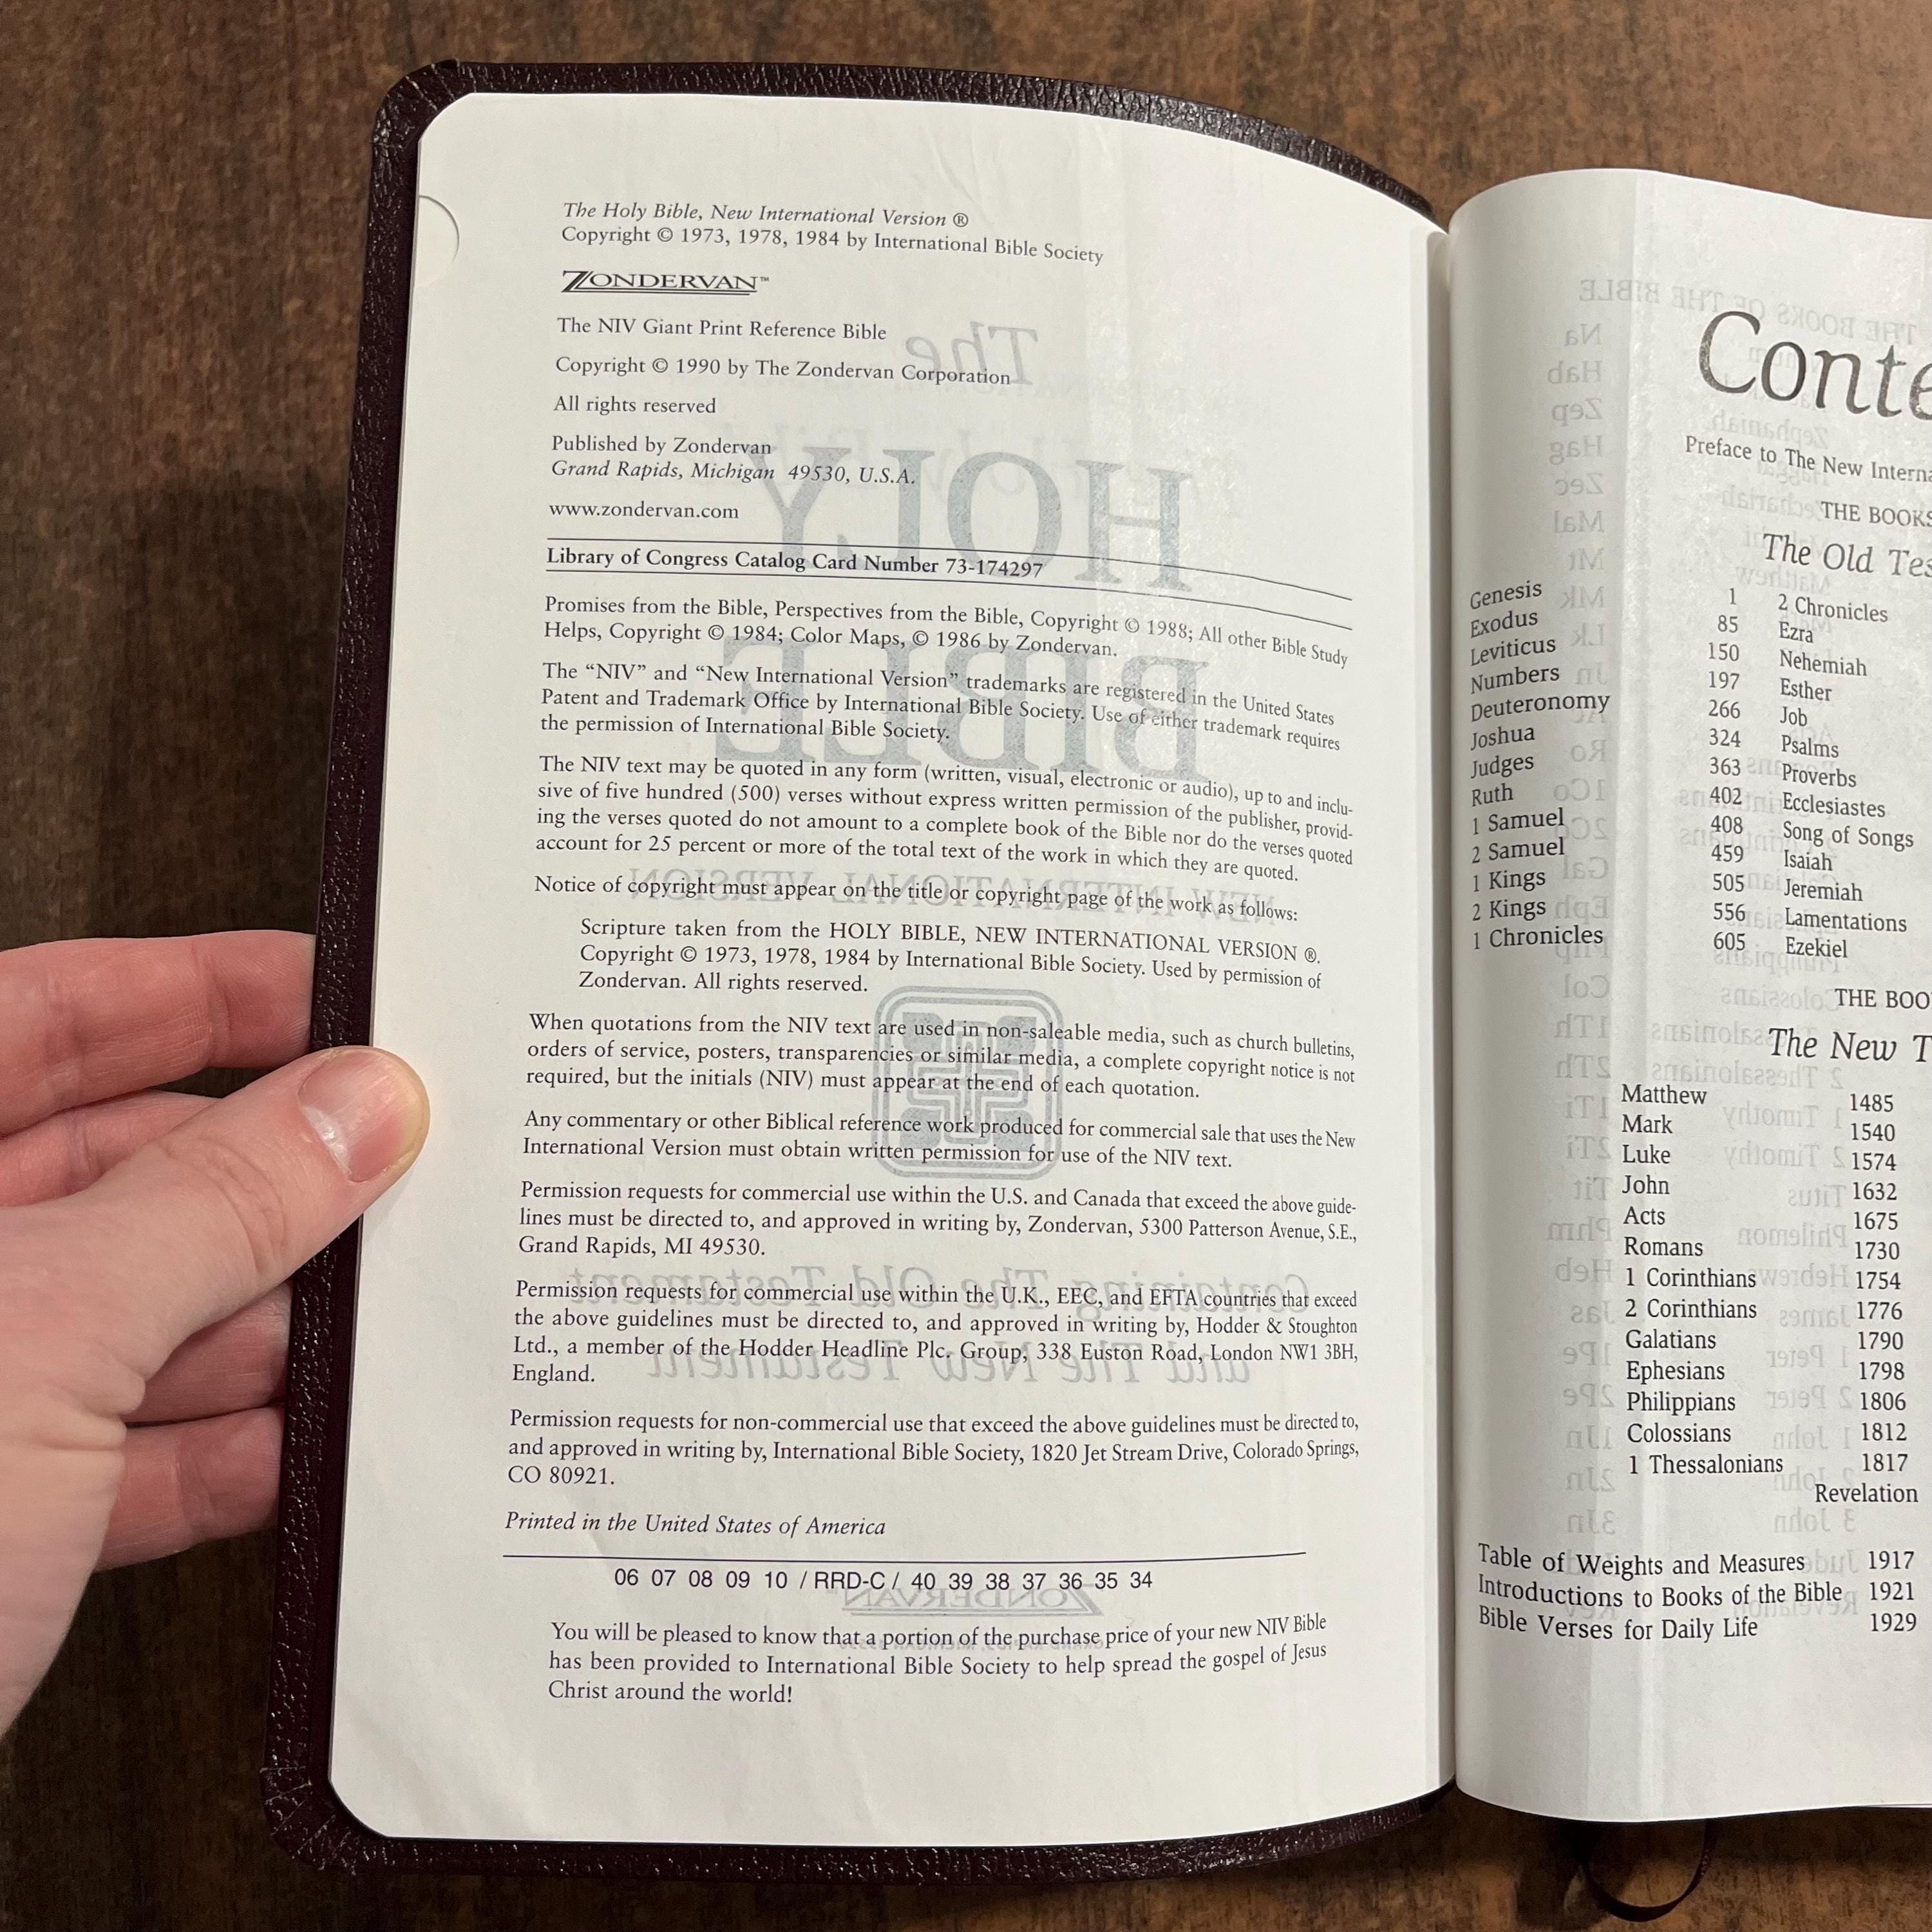 The Holy Bible, New International Version ®
Copyright © 1973, 1978, 1984 by International Bible Society
ZONDERVAN™
The NIV Giant Print Reference Bible
Copyright © 1990 by The Zondervan Corporation
All rights reserved
Published by Zondervan
Grand Rapids, Michigan 49530, U.S.A.
www.zondervan.com
Library of Congress Catalog Card Number 73-174297
Promises from the Bible, Perspectives from the Bible, Copyright © 1988; All other Bible Study
Helps, Copyright © 1984; Color Maps, © 1986 by Zondervan.
The “NIV” and “New International Version” trademarks are registered in the United States
Patent and Trademark Office by International Bible Society. Use of either trademark requires
the permission of International Bible Society.
The NIV text may be quoted in any form (written, visual, electronic or audio), up to and inclu-
sive of five hundred (500) verses without express written permission of the publisher, provid-
ing the verses quoted do not amount to a complete book of the Bible nor do the verses quoted
account for 25 percent or more of the total text of the work in which they are quoted.
Notice of copyright must appear on the title or copyright page of the work as follows:
Scripture taken from the HOLY BIBLE, NEW INTERNATIONAL VERSION ®.
Copyright © 1973, 1978, 1984 by International Bible Society. Used by permission of
Zondervan. All rights reserved.
When quotations from the NIV text are used in non-saleable media, such as church bulletins,
orders of service, posters, transparencies or similar media, a complete copyright notice is not
required, but the initials (NIV) must appear at the end of each quotation.
Any commentary or other Biblical reference work produced for commercial sale that uses the New
International Version must obtain written permission for use of the NIV text.
Permission requests for commercial use within the U.S. and Canada that exceed the above guide-
lines must be directed to, and approved in writing by, Zondervan, 5300 Patterson Avenue, S.E.,
Grand Rapids, MI 49530.
Permission requests for commercial use within the U.K., EEC, and EFTA countries that exceed
the above guidelines must be directed to, and approved in writing by, Hodder & Stoughton
Ltd., a member of the Hodder Headline Plc. Group, 338 Euston Road, London NW1 3BH,
England.
Permission requests for non-commercial use that exceed the above guidelines must be directed to,
and approved in writing by, International Bible Society, 1820 Jet Stream Drive, Colorado Springs,
CO 80921.
Printed in the United States of America
06 07 08 09 10 / RRD-C / 40 39 38 37 36 35 34
You will be pleased to know that a portion of the purchase price of your new NIV Bible
has been provided to International Bible Society to help spread the gospel of Jesus
Christ around the world!
Conte
Preface to The New Interna
THE BOOKS
The Old Tes
Genesis 1 2 Chronicles
Exodus 85 Ezra
Leviticus 150 Nehemiah
Numbers 197 Esther
Deuteronomy 266 Job
Joshua 324 Psalms
Judges 363 Proverbs
Ruth 402 Ecclesiastes
1 Samuel 408 Song of Songs
2 Samuel 459 Isaiah
1 Kings 505 Jeremiah
2 Kings 556 Lamentations
1 Chronicles 605 Ezekiel
THE BOO
The New T
Matthew 1485
Mark 1540
Luke 1574
John 1632
Acts 1675
Romans 1730
1 Corinthians 1754
2 Corinthians 1776
Galatians 1790
Ephesians 1798
Philippians 1806
Colossians 1812
1 Thessalonians 1817
Revelation
Table of Weights and Measures 1917
Introductions to Books of the Bible 1921
Bible Verses for Daily Life 1929